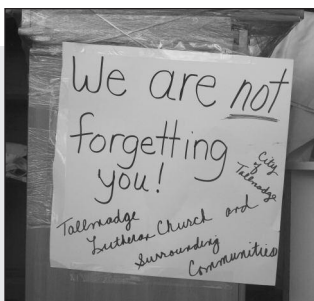 We are not
forgetting
you!
City
of
Tallmadge
Tallmadge
Lutheran Church and
Surrounding
Communities